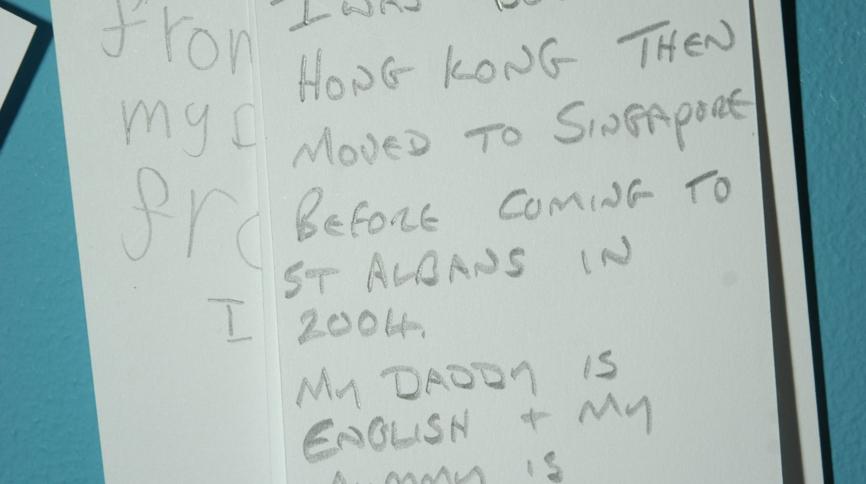 from
my
I WAS
HONG KONG THEN
MOVED TO SINGAPORE
BEFORE COMING TO
ST ALBANS IN
2004.
MY DADDY IS
ENGLISH + MY
IS
I